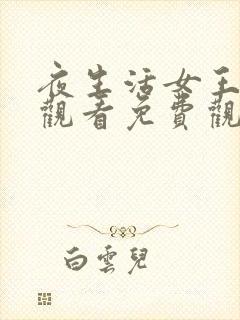 夜生活女王
觀看免費觀
白雲兒